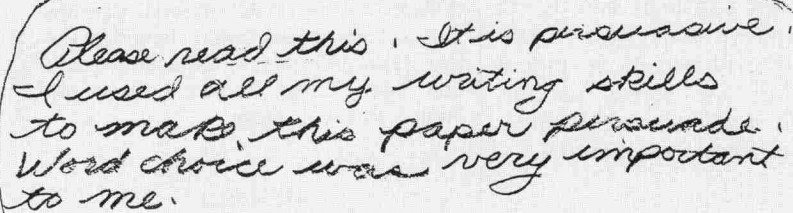 Please read this. It is persuasive.
I used all my writing skills
to make this paper persuade.
Word choice was very important
to me.